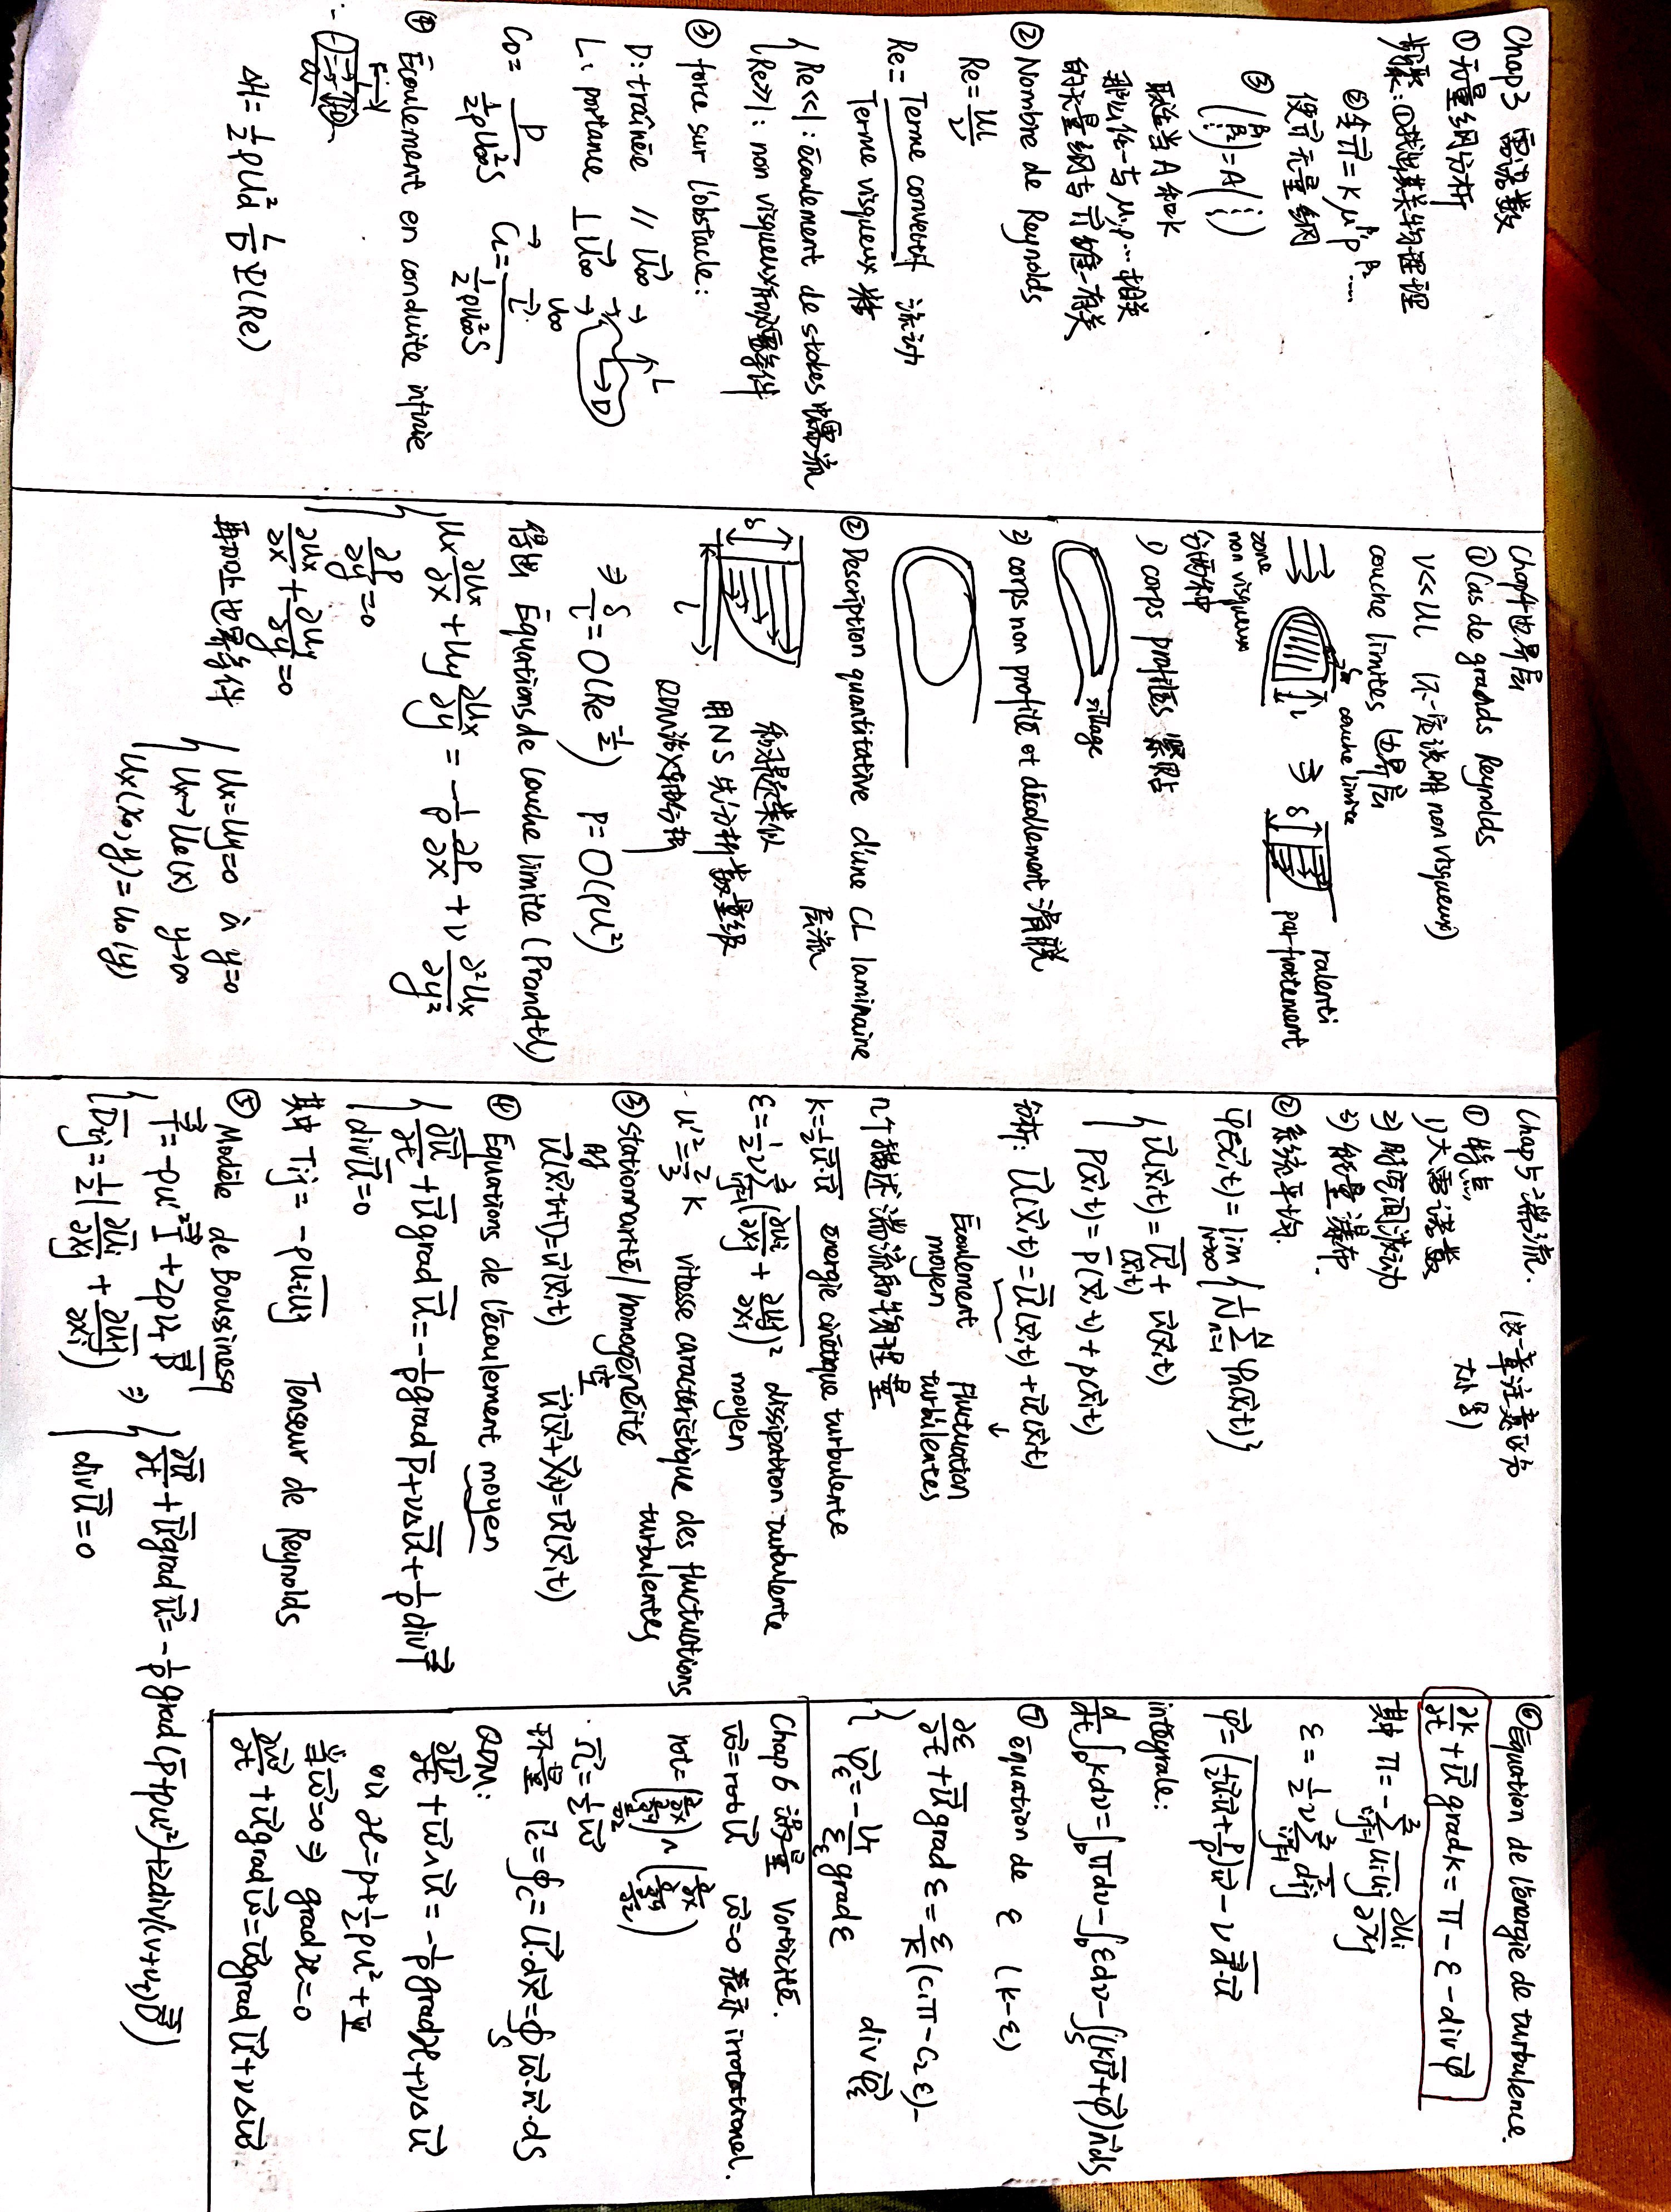 Chap3 雷诺数
①无量纲分析
步骤:①找出其关物理理
②令π⃗=Kμ^β₁ρ^β₂....
使π⃗无量纲
③ (β₁ β₂ ⋮)=A(⋮)
取适当A和K
那么任一与μ,ρ…相关
的无量纲与π⃗唯一有关
② Nombre de Reynolds
Re=UL/ν
Re=Terme convectif 流动/Terme visqueux 粘
Re<<1: écoulement de stokes
Re>>1: non visqueux
③ force sur l'obstacle:
D: traînée // U⃗∞
L: portance ⊥U⃗∞
L
D
U∞
C_D= D/(½ρU∞²S) C⃗_L= L⃗/(½ρU∞²S)
④ Écoulement en conduite infinie
L
D
ΔH=½ρU_d² L/D Ψ(Re)
Chap4边界层
①Cas de grands Reynolds
ν<<UL (不一定说明non visqueux)
couche limites 边界层
couche limite
l
δ
ralenti
par frottement
zone
non visqueux
分两种
1) corps profilés 紧贴
sillage
2) corps non profilé et décollement 滑脱
② Description quantitative d'une CL laminaire
层流
δ
和习题类似
用NS先分析数量级
L
QDM沿x轴分析
⇒ δ/L=O(Re^-½) P=O(ρU²)
得出 Équations de couche limite (Prandtl)
Ux ∂Ux/∂x + Uy ∂Ux/∂y = -1/ρ ∂P/∂x + ν ∂²Ux/∂y²
∂P/∂y=0
∂Ux/∂x + ∂Uy/∂y=0
再加上边界条件
Ux=Uy=0 à y=0
Ux→Ue(x) y→∞
Ux(x₀,y)=U₀(y)
Chap5湍流.
(这一章注意区分
大小写)
① 特点
1)大雷诺数
2)时空间波动
3)能量瀑布.
②系统平均.
φ̄(x⃗,t)=lim N→∞ {1/N Σ n=1 N φn(x⃗,t)}
U⃗(x⃗,t)=U̅⃗(x⃗,t)+u⃗(x⃗,t)
P(x⃗,t)=P̅(x⃗,t)+p(x⃗,t)
分析: U⃗(x⃗,t)=U̅⃗(x⃗,t)+u⃗(x⃗,t)
↓
Écoulement
moyen
Fluctuation
turbulentes
几个描述湍流的物理量
K=½u⃗·u⃗ énergie cinétique turbulente
ε=½ν Σ i,j=1 3 (∂ui/∂xj + ∂uj/∂xi)² dissipation turbulente
moyen
u'²=2/3 K vitesse caractéristique des fluctuations
turbulentes
③ stationnarité/homogénéité
时 空
u⃗(x⃗,t+T)=u⃗(x⃗,t) u⃗(x⃗+X⃗,t)=u⃗(x⃗,t)
④ Equations de l'écoulement moyen
∂U̅⃗/∂t + U̅⃗ grad U̅⃗=-1/ρ grad P̅+νΔU̅⃗+1/ρ div T
div U̅⃗=0
其中 Tij=-ρ uiuj Tenseur de Reynolds
⑤ Modèle de Boussinesq
T=-ρu'²I+2ρν_T D̅
D̅ij=½(∂U̅i/∂xj + ∂U̅j/∂xi)
⇒ ∂U̅⃗/∂t + U̅⃗ grad U̅⃗=-1/ρ grad(P̅+ρu'²)+2div((ν+ν_T)D̅)
div U̅⃗=0
⑥Equation de l'énergie de turbulence.
∂K/∂t + U̅⃗ grad K=π-ε-div φ⃗
其中 π=-Σ i,j=1 3 uiuj ∂Ui/∂xj
ε=½ν Σ i,j=1 3 d²ij
φ⃗=(½u⃗·u⃗+p/ρ)u⃗-ν d·u⃗
intégrale:
d/dt∫_D Kdv=∫_D πdv-∫_D εdv-∫_S(KU̅⃗+φ⃗)n⃗ds
⑦ équation de ε (K-ε)
∂ε/∂t + U̅⃗ grad ε=ε/K(C₁π-C₂ε)-
div φ⃗ε
φ⃗ε=-ν_T/εε grad ε
Chap6 涡量 Vorticité.
ω⃗=rot U⃗ ω⃗=0 表示irrotationel.
rot=(∂/∂x ∂/∂y ∂/∂z)∧(∂/∂x ∂/∂y ∂/∂z)
Ω⃗=½ω⃗
环量 Γc=∮c=U⃗·dx⃗=∮_S ω⃗·n⃗·dS
QDM:
∂U⃗/∂t + ω⃗∧U⃗=-1/ρ grad H+νΔU⃗
où H=p+½ρu²+Ψ
当ω⃗=0⇒ grad H=0
∂ω⃗/∂t + U⃗ grad ω⃗=ω⃗ grad U⃗+νΔω⃗.